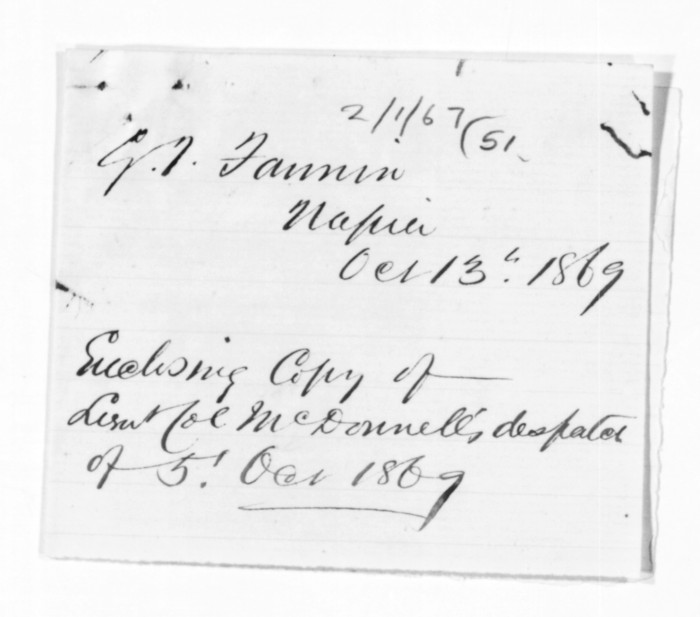 2/1/67 (51
G. T. Fannin
Napier
Oct 13th. 1869
Enclosing Copy of
Lieut Col McDonnell's despatch
of 5t Oct 1869